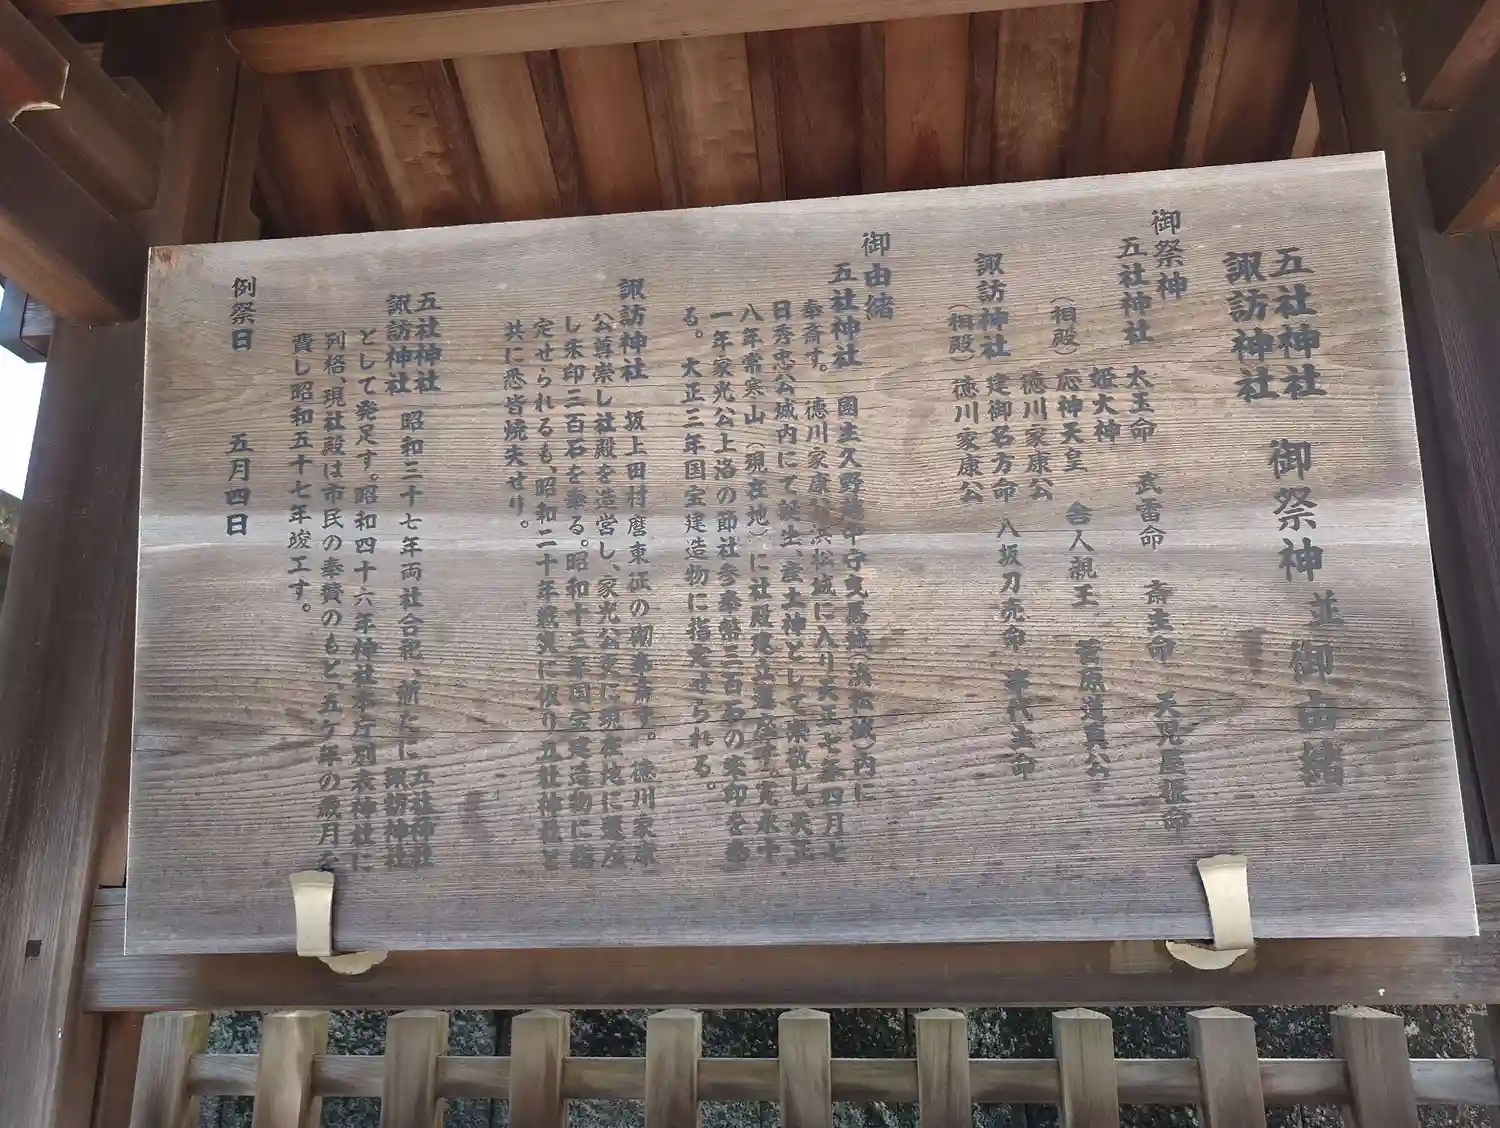 五社神社
諏訪神社
御祭神並御由緒
御祭神
五社神社 太玉命 武雷命 斎主命 天児屋根命
姫大神
(相殿) 応神天皇 舎人親王 菅原道真公
徳川家康公
諏訪神社 建御名方命 八坂刀売命 事代主命
(相殿) 徳川家康公
御由緒
五社神社 国主久野越中守曳馬城(浜松城)内に
奉斎す。徳川家康公浜松城に入り天正七年四月七
日秀忠公城内にて誕生、産土神として崇敬し、天正
八年常寒山(現在地)に社殿建立遷座す。寛永十
一年家光公上洛の節社参奉幣三百石の朱印を奉
る。大正三年国宝建造物に指定せられる。
諏訪神社 坂上田村麿東征の期奉斎す。徳川家康
公尊崇し社殿を造営し、家光公更に現在地に遷座
し朱印三百石を奉る。昭和十三年国宝建造物に指
定せられるも、昭和二十年戦災に依り五社神社と
共に悉皆焼失せり。
五社神社
諏訪神社
昭和三十七年両社合祀、新たに
五社神社
諏訪神社
として発足す。昭和四十六年神社本庁別表神社に
列格、現社殿は市民の奉賛のもと、五ケ年の歳月を
費し昭和五十七年竣工す。
例祭日 五月四日